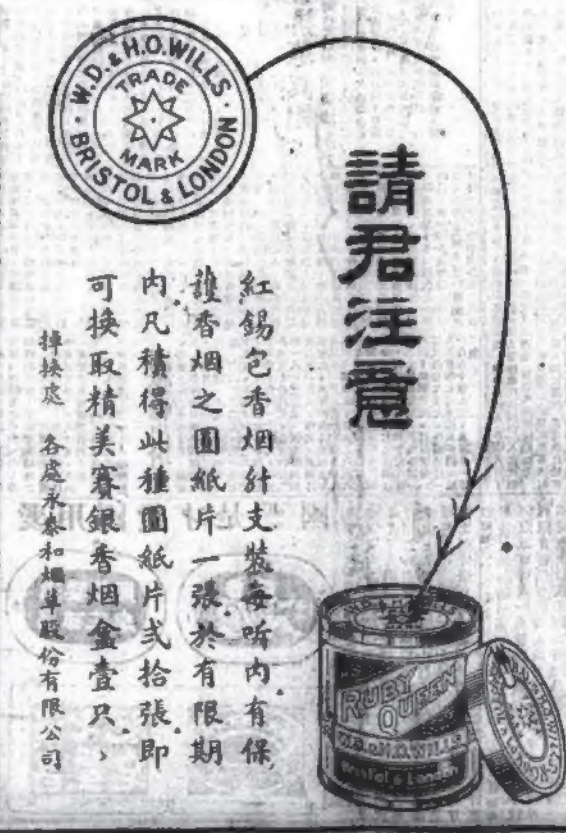 W.D.&H.O.WILLS.
BRISTOL & LONDON
TRADE
MARK
請君注意
紅錫包香烟支裝每听內有保
護香烟之圓紙片一張於有限期
内凡積得此種圓紙片弍拾張即
可換取精美賽銀香烟盒壹只、
掉換處 各處永泰和烟草股份有限公司
RUBY
QUEEN
W.D.&H.O.WILLS.
Bristol & London